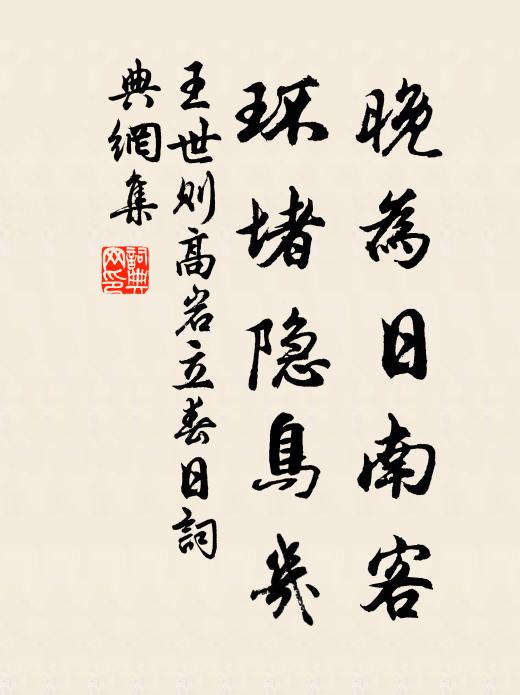 晚為日南客
环堵隐鳥几
王世则高岩立春日詞
典網集
詞典
网印